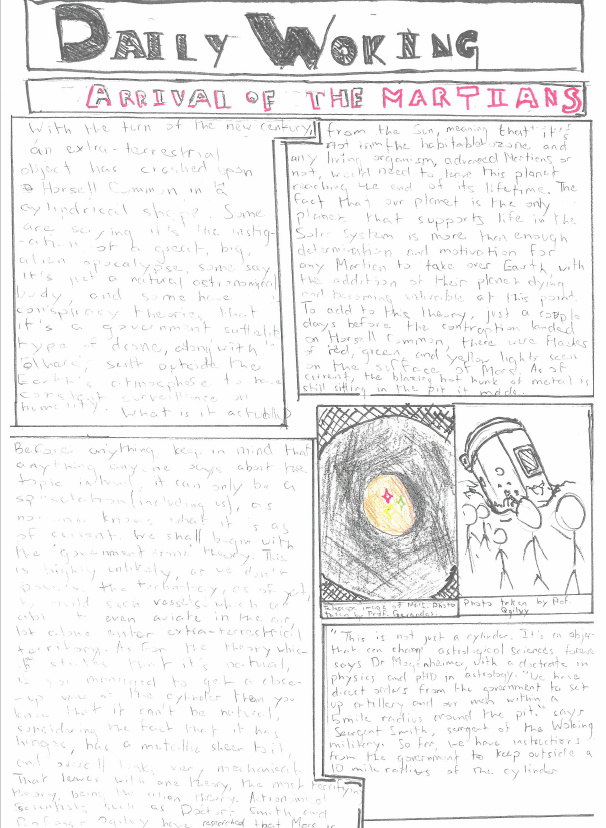 DAILY WOKING
ARRIVAL OF THE MARTIANS
With the turn of the new century,
an extra-terrestrial
object has crashed upon
Horsell Common in a
cylindrical shape. Some
are saying it's the instig-
-ation of a great, big,
alien apocalypse, some say
it's just a natural astronomical
body, and some have
conspiracy theories that
it's a government satellite
type of drone, along with
others, sent outside the
Earth's atmosphere to have
constant surveillance on
humanity. What is it actually?
Before anything, keep in mind that
anything anyone says about the
topic in hand, it can only be a
speculation (including us), as
no-one knows what it is as
of current. We shall begin with
the government drone theory. This
is highly unlikely, as we don't
possess the technology, as of yet,
to build even vessels which can
even aviate in the air,
let alone enter extra-terrestrial
territory. As for the theory which
states that it's natural,
if you managed to get a close-
-up view of the cylinder then you
know that it can't be natural,
considering the fact that it has
hinges, has a metallic sheen to it
and overall looks very mechanical.
That leaves with one theory, the most terrifying
theory, being the alien theory. Astronomical
scientists such as Doctor Smith and
Professor Ogilvy have researched that Mars is
from the Sun, meaning that it's
not in the habitable zone and
any living organism, advanced Martians or
not, would need to leave this planet
reaching the end of its lifetime. The
fact that our planet is the only
planet that supports life in the
Solar System is more than enough
determination and motivation for
any Martian to take over Earth, with
the addition of their planet dying
and becoming unlivable at this point.
To add to the theory, just a couple
days before the contraption landed
on Horsell Common, there were flashes
of red, green and yellow lights seen
on the surface of Mars. As of
current, the blazing hot hunk of metal is
still sitting in the pit it made.
Telescope image of Mars. Photo
taken by Prof.
Photo taken by Prof.
Ogilvy
"This is not just a cylinder. It's an object
that can change astrological sciences forever"
says Dr with a doctrate in
physics and PHD in astrology. "We have
direct orders from the government to set
up artillery and our men within a
mile radius around the pit." says
Seargent Smith, seargent of the Woking
military. So far, we have instructions
from the government to keep outside a
10 mile radius of the cylinder